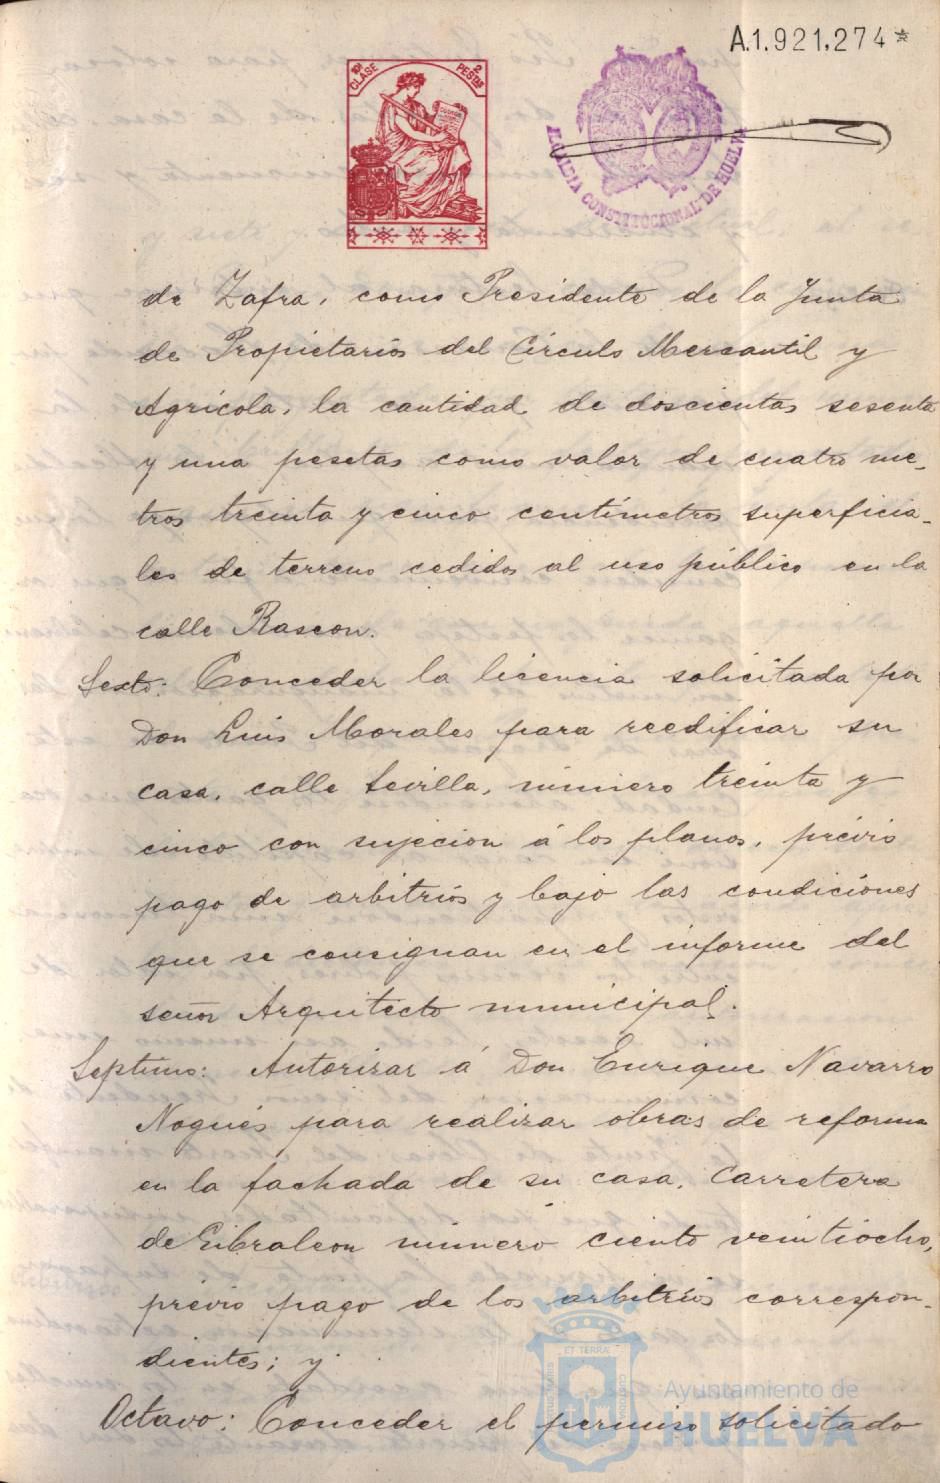 A.1.921,274*
10ª CLASE 2 PESTAS
ALCALDIA CONSTITUCIONAL DE HUELVA
de Zafra, como Presidente de la Junta
de Propietarios del Círculo Mercantil y
Agrícola, la cantidad de doscientas sesenta
y una pesetas como valor de cuatro me-
tros treinta y cinco centímetros superficia-
les de terreno cedidos al uso público en la
calle Rascon.
Sexto: Conceder la licencia solicitada por
Don Luis Morales para reedificar su
casa, calle Sevilla, número treinta y
cinco con sujecion á los planos, prévio
pago de arbitrios y bajo las condiciones
que se consignan en el informe del
señor Arquitecto municipal.
Septimo: Autorizar á Don Enrique Navarro
Nogués para realizar obras de reforma
en la fachada de su casa, Carretera
de Gibraleon número ciento veintiocho,
prévio pago de los arbitrios correspon-
dientes; y
Octavo: Conceder el permiso solicitado
ET TERRA
Ayuntamiento de
HUELVA